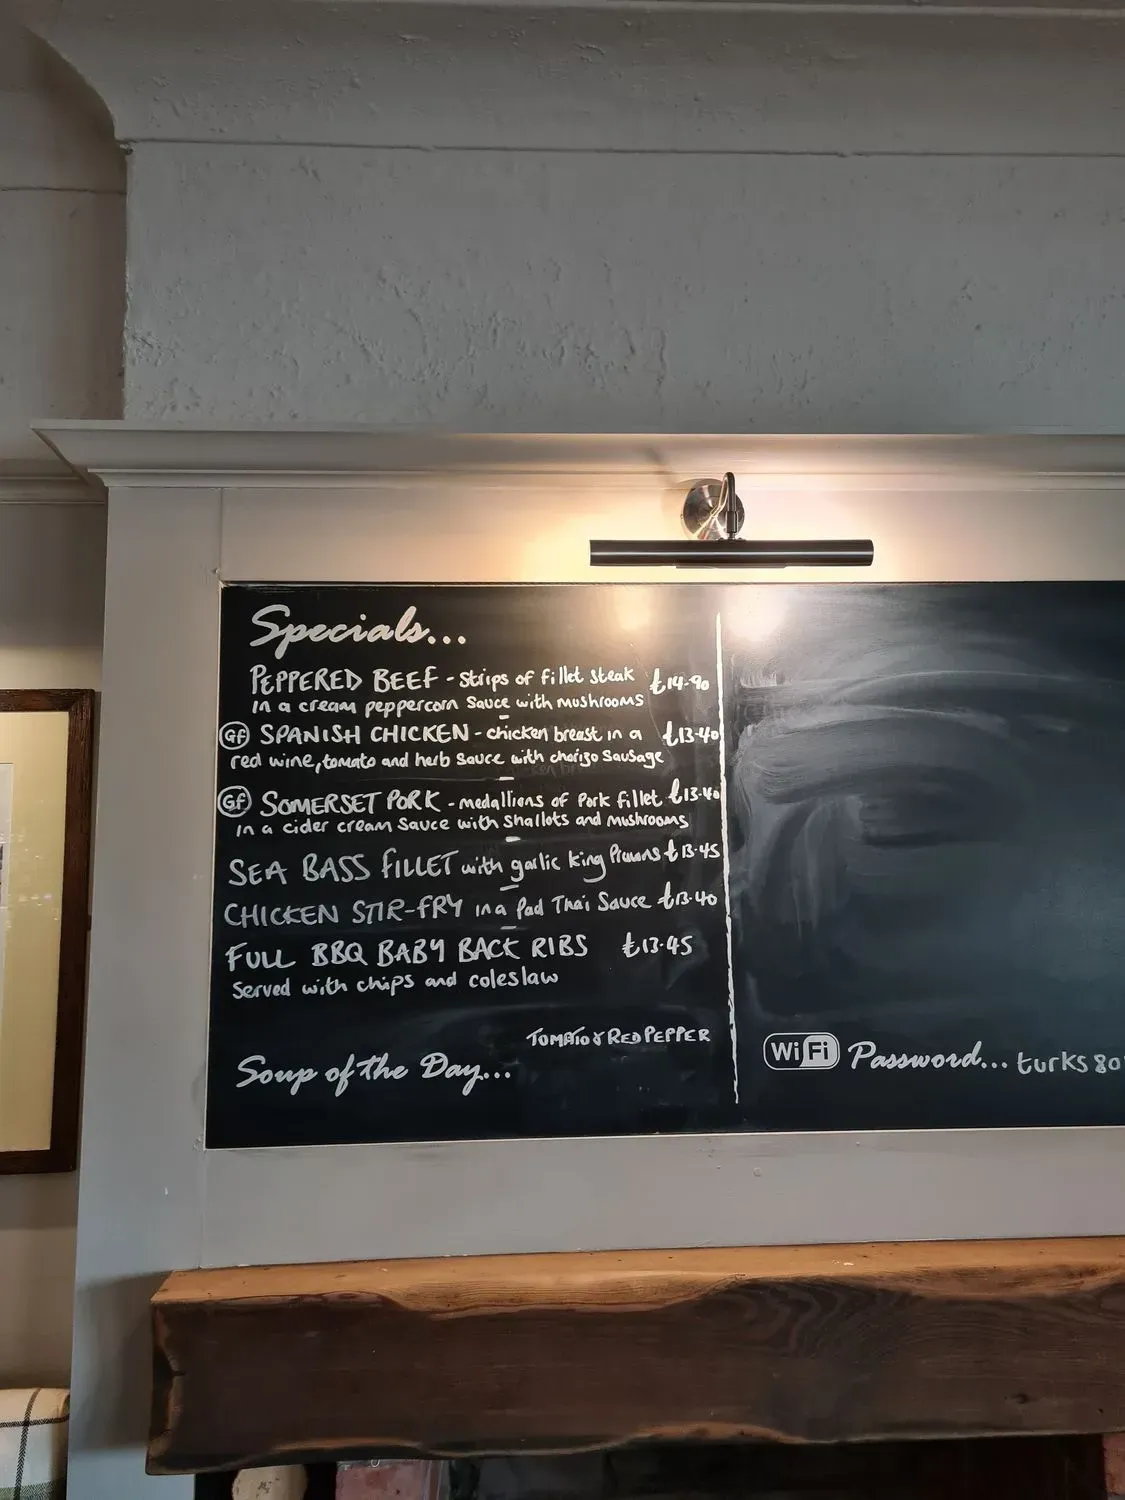 Specials...
PEPPERED BEEF - Strips of fillet steak £14-90
in a cream peppercorn Sauce with mushrooms
GF SPANISH CHICKEN - chicken breast in a £13-40
red wine, tomato and herb sauce with chorizo Sausage
GF SOMERSET PORK - medallions of Pork fillet £13-40
in a cider cream Sauce with Shallots and mushrooms
SEA BASS FILLET with garlic king Prawns £13-45
CHICKEN STIR-FRY in a Pad Thai Sauce £13-40
FULL BBQ BABY BACK RIBS £13-45
Served with chips and coleslaw
TOMATO & RED PEPPER
Soup of the Day...
WiFi Password... turks80